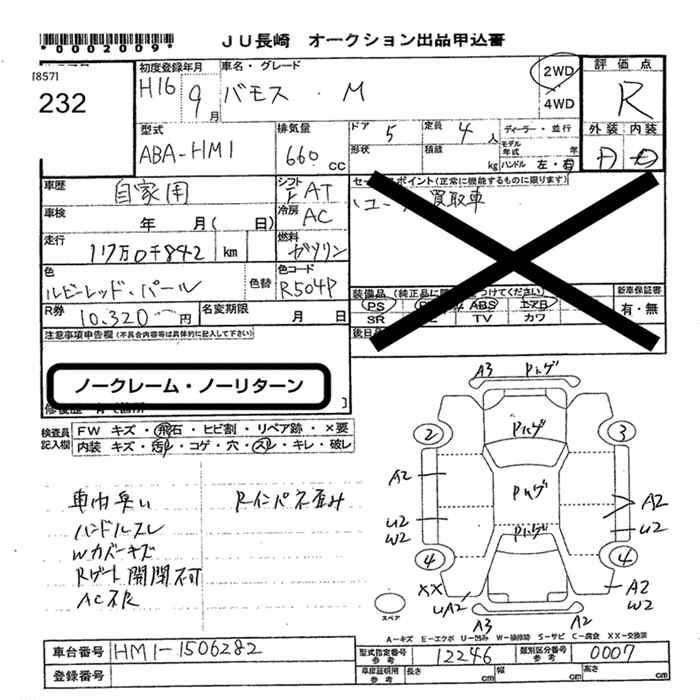 *0002009*
JU長崎 オークション出品申込書
[857]
232
初度登録年月
H16 9月
車名・グレード
バモス・M
2WD
4WD
評価点
R
外装 内装
D D
型式
ABA-HM1
排気量
660 cc
ドア 5
定員 4人
ディーラー・並行
形状
積載 kg
モデル年式 年
ハンドル 左・右
車歴
自家用
シフト
F AT
セールスポイント(正常に機能するものに限ります)
ユーザー買取車
車検
年 月( 日)
冷房
AC
走行
11万0千842 km
燃料
ガソリン
色
ルビーレッド・パール
色替
色コード
R504P
装備品 (純正品に限り○をつけてください)
PS PW ABS エアB
SR TV カワ
新車保証書
有・無
R券
10,320円
名変期限
月 日
後日品
注意事項申告欄(不具合内容等は具体的に記入して下さい)
ノークレーム・ノーリターン
修復歴
検査員記入欄
FW キズ・飛石・ヒビ割・リペア跡・×要
内装 キズ・汚れ・コゲ・穴・スレ・キレ・破レ
車内臭い
ハンドルスレ
Wカバーキズ
Rゲート開閉不可
AC不良
Rインパネ歪み
A3 Pハゲ
Pハゲ
2 3
A2
Pハゲ
A2
U2
W2
Pハゲ
U2
4 4
XX
UA2
A2
W2
スペア
A3 A2
A-キズ E-エクボ U-凹み W-補修跡 S-サビ C-腐食 XX-交換済
車台番号
HM1-1506282
型式指定番号 参考
12246
類別区分番号 参考
0007
登録番号
車庫証明用 参考
長さ cm
幅 cm
高さ cm